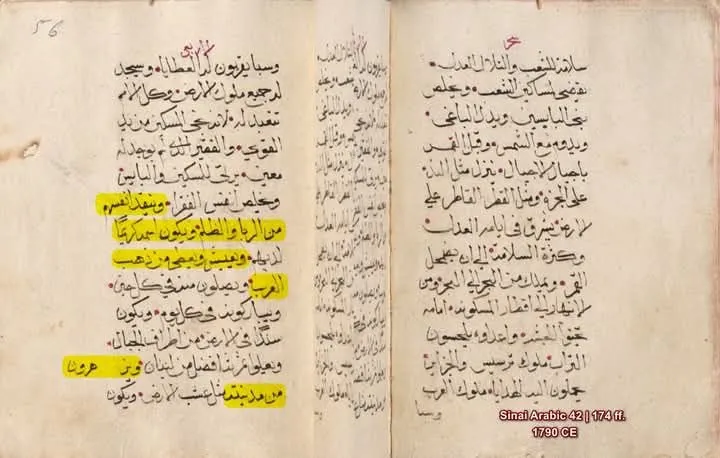 سلامة للشعب والتلال العدل
يقضي لمساكين الشعب ويخلص
بني البايسين ويذل الباغي
ويدوم مع الشمس وقبل القمر
باجيال الاجيال ينزل مثل الندا
على الجزة ومثل القطر القاطر على
الارض يشرق في ايامه العدل
وكثرة السلامة الى ان يضمحل
القمر ويملك من البحر الى البحر ومن
الانهار الى اقطار المسكونة امامه
تجثوا الحبشة واعداوه يلحسون
التراب ملوك ترسيس والجزاير
يحملون اليه الهدايا ملوك العرب
وسبا
٥٦
وسبا يقربون له العطايا ويسجد
له جميع ملوك الارض وكل الامم
تتعبد له لانه نجى المسكين من يد
القوي والفقير الذي لم يوجد له
معين يرثي للمسكين والبايس
ويخلص انفس الفقرا وينقذ انفسهم
من الربا والظلم ويكون اسمه كريمًا
لديهم ويعيش ويعطى من ذهب
العرب ويصلون منه في كل حين
ويباركونه في كل يوم ويكون
سندًا في الارض من اطراف الجبال
ويعلوا ثمرتها افضل من لبنان ويزهرون
من مدينته مثل عشب الارض ويكون
Sinai Arabic 42 | 174 ff.
1790 CE